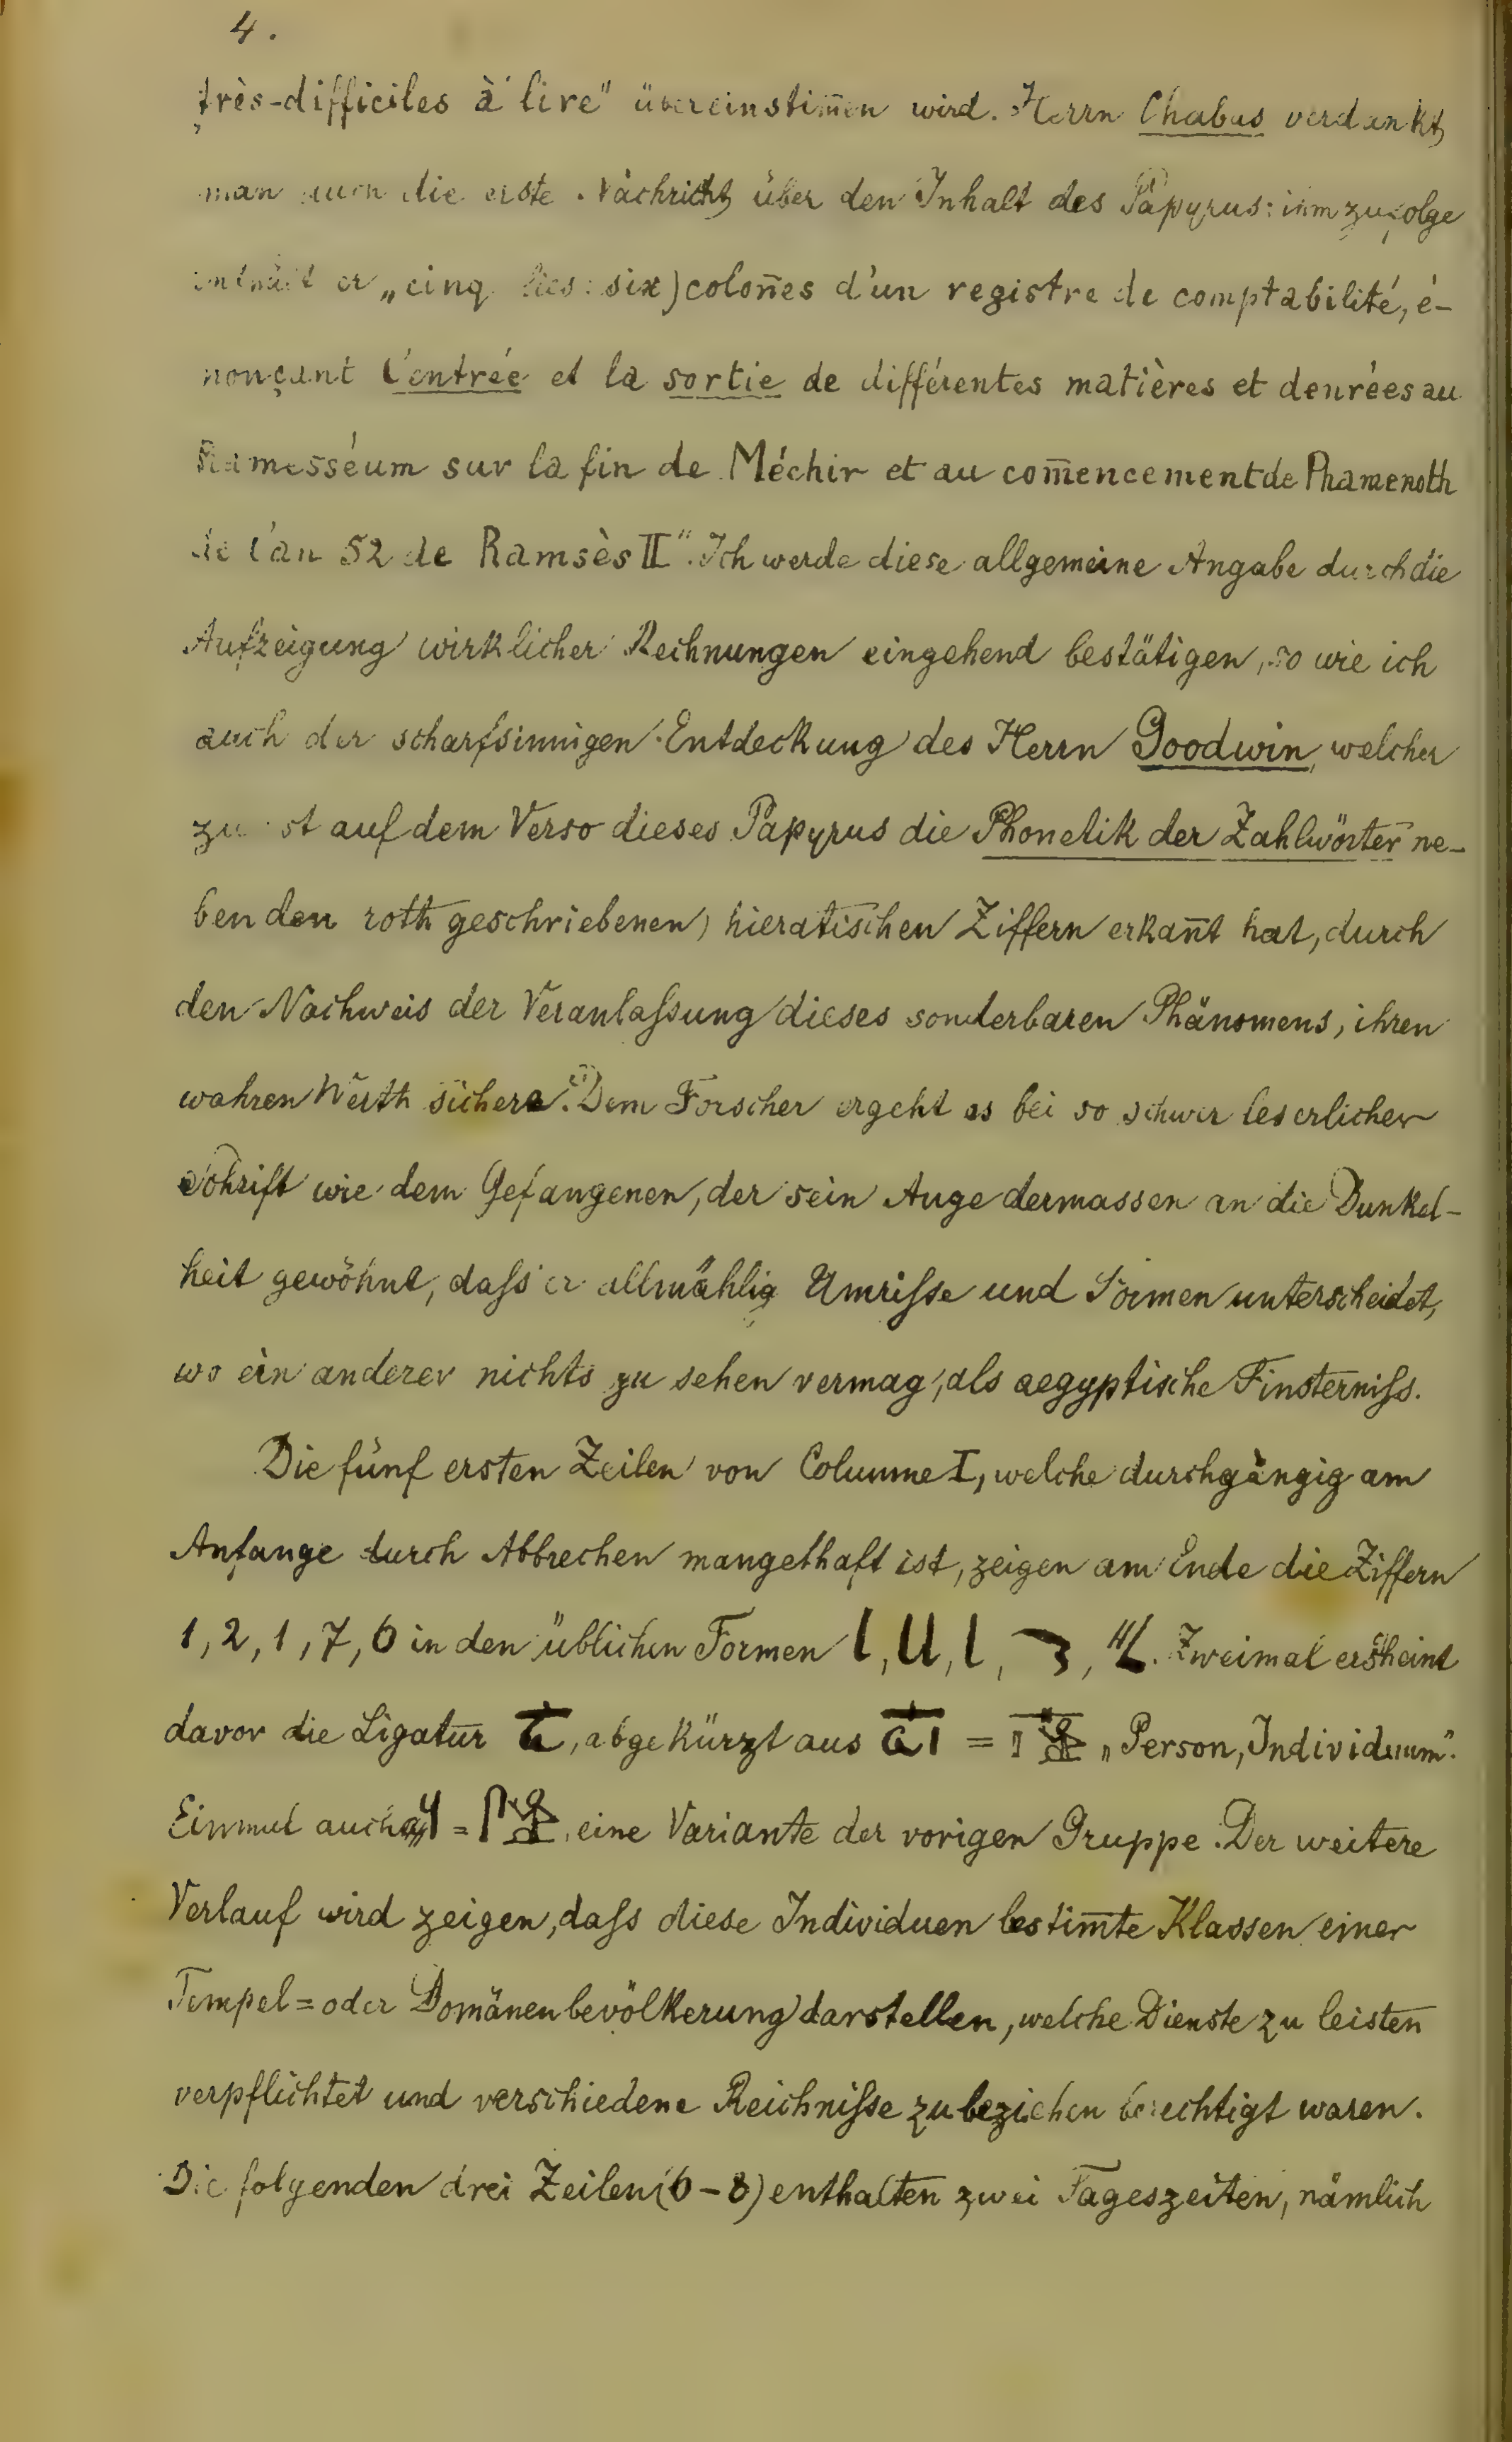 4.
très-difficiles à lire" übereinstim̄en wird. Herrn Chabas verdankt
man auch die erste Nachricht über den Inhalt des Papyrus: ihm zufolge
enthält er „cinq (lies: six) colon̄es d'un registre de comptabilité, é-
nonçant l'entrée et la sortie de différentes matières et denrées au
Ramesséum sur la fin de Méchir et au com̄encement de Phamenoth
de l'an 52 de Ramsès II". Ich werde diese allgemeine Angabe durch die
Aufzeigung wirklicher Rechnungen eingehend bestätigen, so wie ich
auch der scharfsinnigen Entdeckung des Herrn Goodwin, welcher
zuerst auf dem Verso dieses Papyrus die Phonetik der Zahlwörter ne-
ben den roth geschriebenen) hieratischen Ziffern erkan̄t hat, durch
den Nachweis der Veranlaſsung dieses sonderbaren Phänomens, ihren
wahren Werth sichere. Dem Forscher ergeht es bei so schwer leserlicher
Schrift wie dem Gefangenen, der sein Auge dermassen an die Dunkel-
heit gewöhnt, daſs er allmählig Umriſse und Formen unterscheidet,
wo ein anderer nichts zu sehen vermag, als aegyptische Finsterniſs.
Die fünf ersten Zeilen von Columne I, welche durchgängig am
Anfange durch Abbrechen mangelhaft ist, zeigen am Ende die Ziffern
1, 2, 1, 7, 6 in den üblichen Formen Zweimal erscheint
davor die Ligatur , abgekürzt aus = „Person, Individuum".
Einmal auch = , eine Variante der vorigen Gruppe. Der weitere
Verlauf wird zeigen, daſs diese Individuen bestim̄te Klassen einer
Tempel= oder Domänenbevölkerung darstellen, welche Dienste zu leisten
verpflichtet und verschiedene Reichniſse zu beziehen berechtigt waren.
Die folgenden drei Zeilen (6-8) enthalten zwei Tageszeiten, nämlich